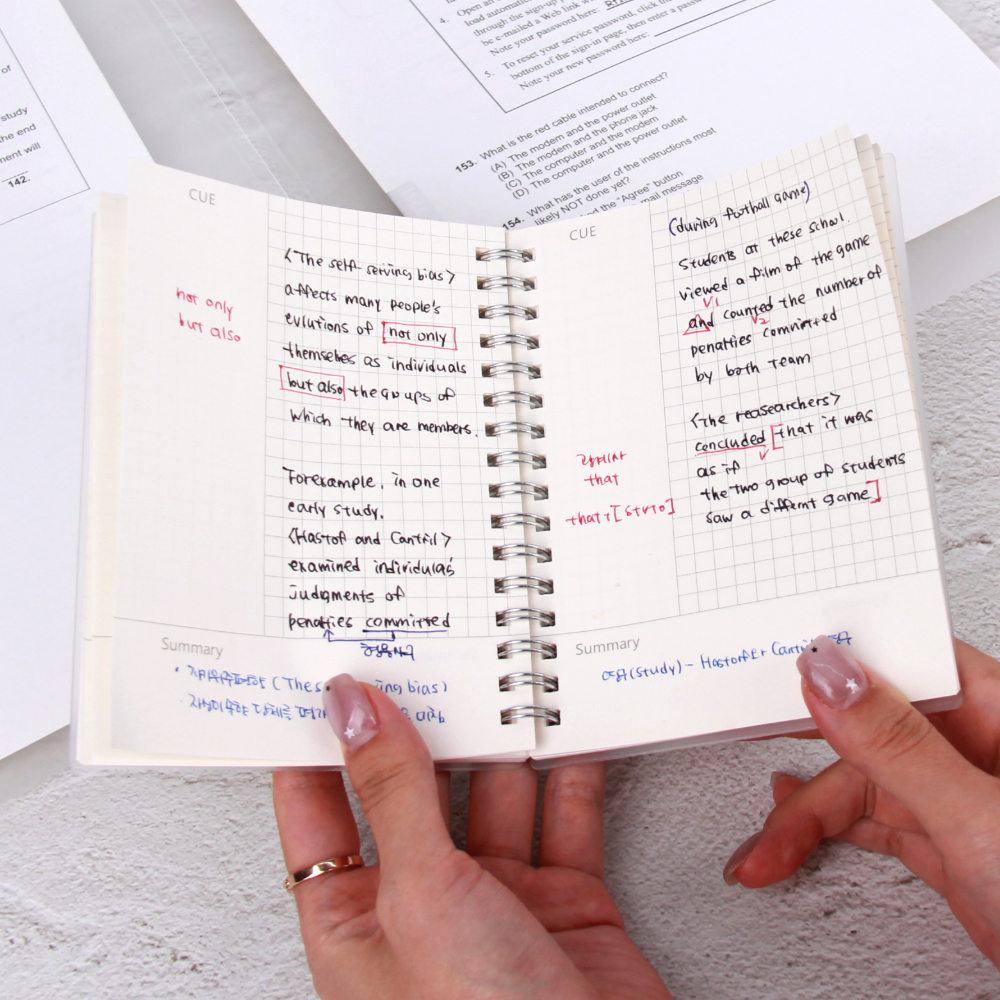 of
study
the end
ment will
142.
4. Open an
load automatic
through the sign-up p
be e-mailed a Web link w
Note your password here:
5. To reset your service password, click th
bottom of the sign-in page, then enter a passw
Note your new password here:
153. What is the red cable intended to connect?
(A) The modem and the power outlet
(B) The modem and the phone jack
(C) The computer and the modem
(D) The computer and the power outlet
154. What has the user of the instructions most
likely NOT done yet?
the "Agree" button
mail message
CUE
not only
but also
<The self-serving bias>
affects many people's
evlutions of not only
themselves as individuals
but also the groups of
which they are members.
Forexample, in one
early study,
<Hastof and Cantril>
examined individulas'
judgments of
penatties committed
형용사
Summary
(The s ing bias)
CUE
that
that절[S+V+O]
(during football game)
Students at these school.
viewed a film of the game
V1
and counted the number of
V2
penatties committed
by both team
<The reasearchers>
concluded [that it was
V
as if
the two group of students
saw a differnt game]
Summary
연구(study) - Hastorf & Cantril 연구